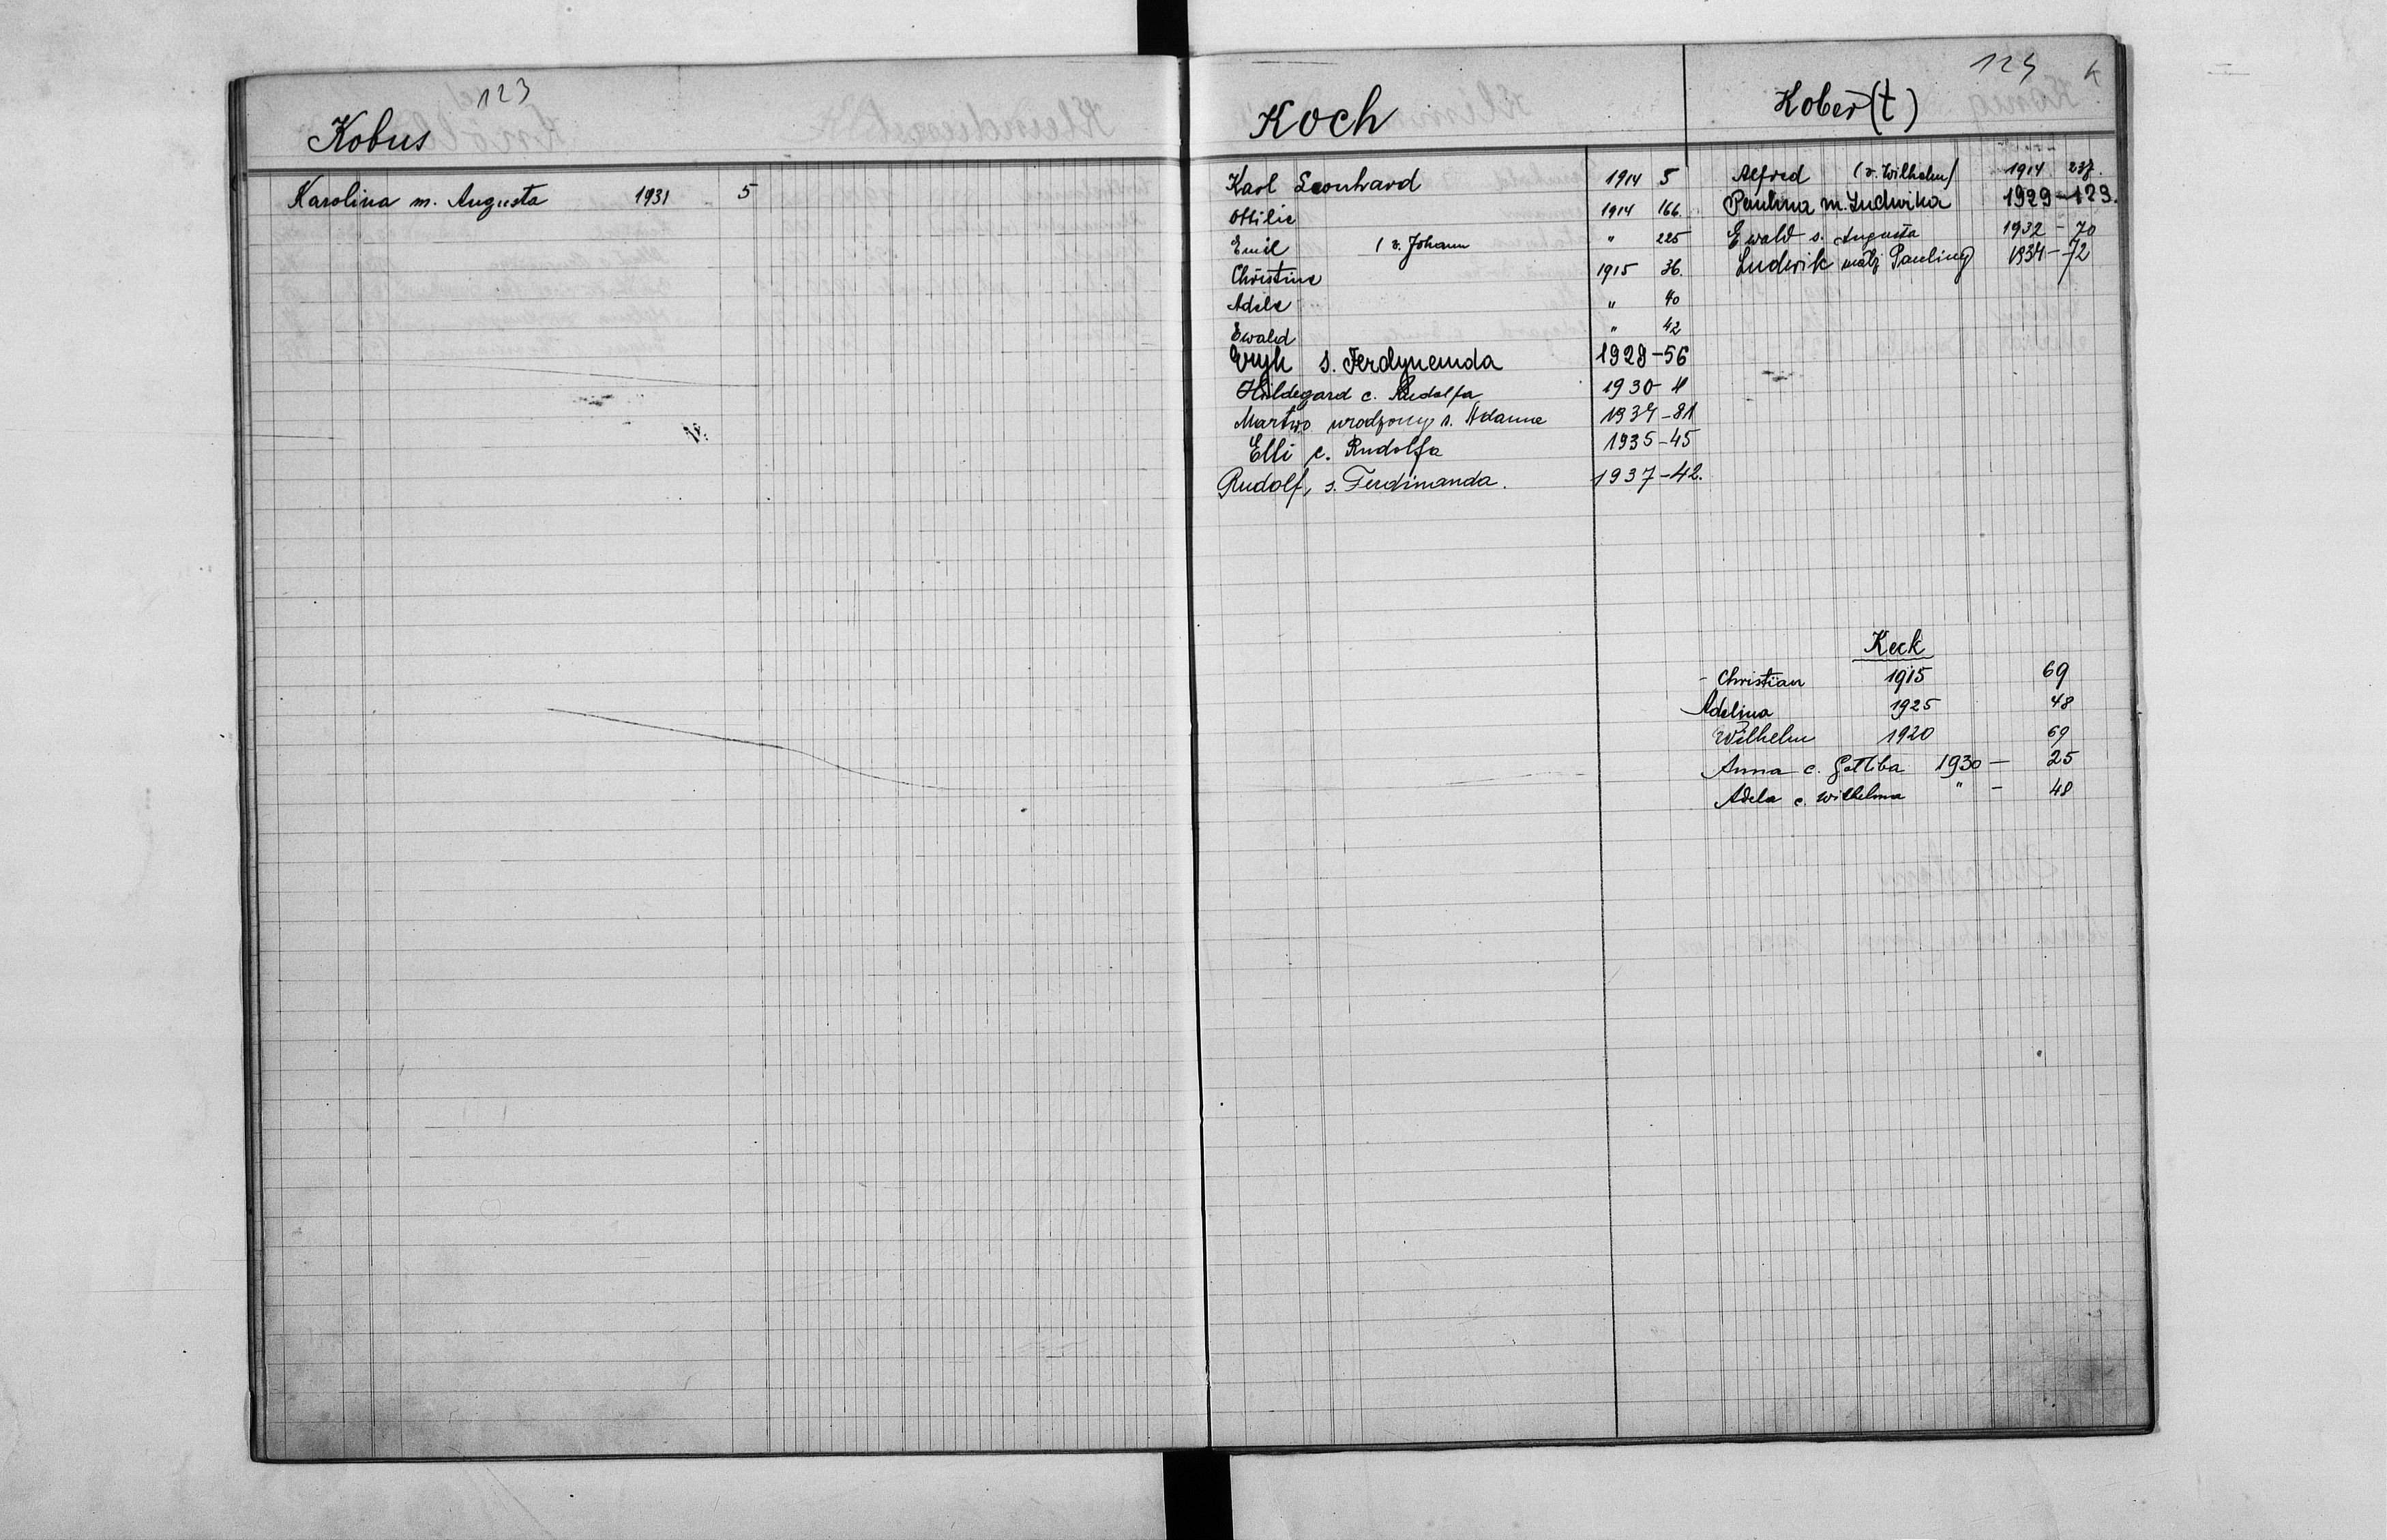 123
Kobus
Karolina m. Augusta 1931 5
Koch
Karl Leonhard 1914 5
Ottilie 1914 166.
Emil (v. Johann " 225
Christine 1915 36.
Adele " 40
Ewald " 42
Eryk s. Ferdynanda 1928-56
Hildegard c. Rudolfa 1930-
Martwo urodzony s. Adama -81
Elli c. Rudolfa 1935-45
Rudolf, s. Ferdinanda. 1937-42.
K
Kober(t)
Alfred (v. Wilhelm) 1914
Paulina m. Ludwika 1929-123.
Ewald s. Augusta 1932-70
Ludwik mąż Pauliny 1934-72
Keck
Christian 1915 69
Adelina 1925 48
Wilhelm 1920 69
Anna c. Gottliba 1930 - 25
Adela c. Wilhelma " - 48